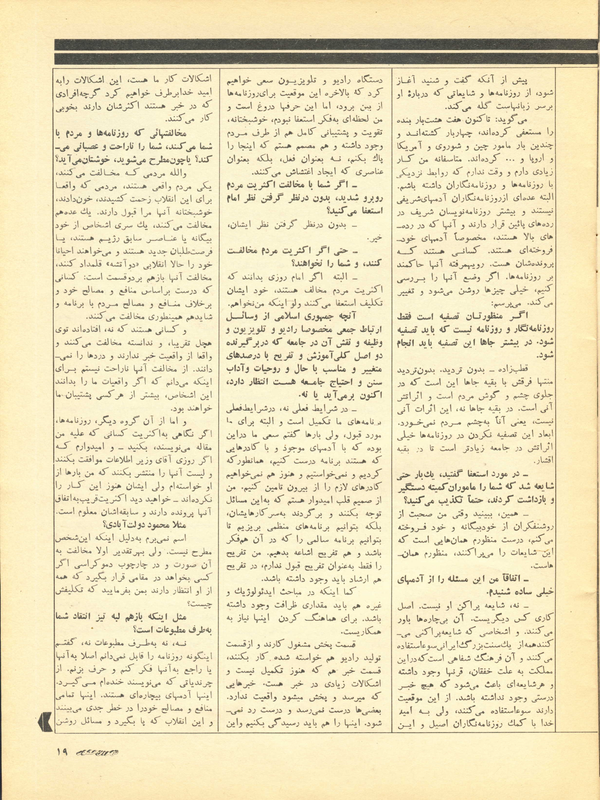 پیش از آنکه گفت و شنید آغاز
شود، از روزنامه‌ها و شایعاتی که دربارهٔ او
برسر زبانهاست گله می‌کند.
می‌گوید: تاکنون هفت هشت‌بار بنده
را مستعفی کرده‌اند، چهاربار کشته‌اند و
چندین بار مامور چین و شوروی و آمریکا
و اروپا و ... کرده‌اند. متاسفانه من کار
زیادی دارم و وقت ندارم که روابط نزدیکی
با روزنامه‌ها و روزنامه‌نگاران داشته باشم.
البته عده‌ای ازروزنامه‌نگاران آدمهای‌شریفی
نیستند و بیشتر روزنامه‌نویسان شریف در
رده‌های پائین قرار دارند و آنها که در رده‌ـ
های بالا هستند، مخصوصاً آدمهای خودـ
فروخته‌ای هستند. کسانی هستند که
پرونده‌شان هست. رویهمرفته آنها حاکمند
بر روزنامه‌ها. اگر وضع آنها را بررسی
کنیم، خیلی چیزها روشن می‌شود و تغییر
می‌کند. می‌پرسم:
اگر منظورتان تصفیه است فقط
روزنامه‌نگار و روزنامه نیست که باید تصفیه
شود. در بیشتر جاها این تصفیه باید انجام
شود.
قطب‌زاده ــ بدون تردید. بدون‌تردید
منتها فرقش با بقیه جاها این است که در
جلوی چشم و گوش مردم است و اثراتش
آنی است. در بقیه جاها نه، این اثرات آنی
نیست، یعنی آناً به‌چشم مردم نمی‌خورد.
ابعاد این تصفیه نکردن در روزنامه‌ها خیلی
اثراتش در جامعه زیادتر است تا در بقیه
اقشار.
ــ در مورد استعفا گفتید، یك‌بار حتی
شایعه شد که شما را ماموران‌کمیته دستگیر
و بازداشت کردند، حتماً تکذیب می‌کنید؟
ــ همین، ببینید وقتی من صحبت از
روشنفکران از خودبیگانه و خود فروخته
می‌کنم، درست منظورم همان‌هایی است که
این شایعات را می‌پراکنند، منظورم همان‌ـ
هاست.
ــ اتفاقاً من این مسئله را از آدمهای
خیلی ساده شنیدم.
ــ نه، شایعه پراکن او نیست. اصل
کاری کس دیگریست. آن بی‌چاره‌ها باور
می‌کنند. و اشخاصی که شایعه‌پراکنی می‌ـ
کنندهمه‌از یك‌سنت‌بزرگ‌ایرانی‌سوءاستفاده
می‌کنند و آن فرهنگ شفاهی است که‌دراین
مملکت به علت خفقان، قرنها وجود داشته
و هرشایعه‌ای باعث می‌شود که هیچ خبر
درستی وجود نداشته باشد. از این موقعیت
دارند سوءاستفاده می‌کنند، ولی به امید
خدا با کمك روزنامه‌نگاران اصیل و این
دستگاه رادیو و تلویزیون سعی خواهیم
کرد که بالاخره این موقعیت برای‌روزنامه‌ها
از بین برود، اما این حرفها دروغ است و
من لحظه‌ای به‌فکر استعفا نبودم، خوشبختانه،
تقویت و پشتیبانی کامل هم از طرف مردم
وجود داشته و هم مصمم هستم که اینجا را
پاك بکنم، نه بعنوان فعل، بلکه بعنوان
عناصری که ایجاد اغتشاش می‌کنند.
ــ اگر شما با مخالفت اکثریت مردم
روبرو شدید، بدون درنظر گرفتن نظر امام
استعفا می‌کنید؟
ــ بدون درنظر گرفتن نظر ایشان،
خیر.
ــ حتی اگر اکثریت مردم مخالفت
کنند، و شما را نخواهند؟
ــ البته اگر امام روزی بدانند که
اکثریت مردم مخالف هستند، خود ایشان
تکلیف استعفا می‌کنند ولو اینکه من‌نخواهم.
آنچه جمهوری اسلامی از وسائل
ارتباط جمعی مخصوصا رادیو و تلویزیون و
وظیفه و نقش آن در جامعه که دربرگیرنده
دو اصل کلی‌آموزش و تفریح با درصدهای
متغیر و مناسب با حال و روحیات وآداب
سنن و احتیاج جامعه هست انتظار دارد،
اکنون برمی‌آید یا نه.
ــ در شرایط فعلی نه، درشرایط‌فعلی
برنامه‌های ما تکمیل است و البته برای ما
مورد قبول، ولی بارها گفتم سعی ما دراین
بوده که با آدمهای موجود و با کادرهایی
که هستند برنامه درست کنیم، همانطورکه
کردیم و نمی‌خواستیم و هنوز هم نمی‌خواهیم
کادرهای لازم را از بیرون تامین کنیم. من
از صمیم قلب امیدوار هستم که به‌این مسائل
توجه بکنند و برگردند به‌سرکارهایشان،
بلکه بتوانیم برنامه‌های منظمی بریزیم تا
بتوانیم برنامه سالمی را که در آن هم‌فکر
باشد و هم تفریح اشاعه بدهیم. من تفریح
را فقط به‌عنوان تفریح قبول ندارم، در تفریح
هم ارشاد باید وجود داشته باشد.
کما اینکه در مباحث ایدئولوژیك و
غیره هم باید مقداری ظرافت وجود داشته
باشد. برای هماهنگ کردن اینها نیاز به
همکاریست.
قسمت پخش مشغول کارند و ازقسمت
تولید رادیو هم خواسته شده کار بکنند،
قسمت خبر هم که هنوز تکمیل نیست و
اشکالات زیادی در خبر هست. خبرهایی
که میرسد و پخش میشود واقعیت ندارد.
بعضی‌ها درست نمی‌رسد و درست رد نمی‌ـ
شود. اینها را هم باید رسیدگی بکنیم واین
اشکالات کار ما هست، این اشکالات رابه
امید خدابرطرف خواهیم کرد گرچه‌افرادی
که در خبر هستند اکثرشان دارند بخوبی
کار می‌کنند.
مخالفتهائی که روزنامه‌ها و مردم با
شما می‌کنند، شما را ناراحت و عصبانی می‌ـ
کند؟ یاچون‌مطرح می‌شوید، خوشتان‌می‌آید؟
والله مردمی که مخالفت می‌کنند،
یکی مردم واقعی هستند، مردمی که واقعا
برای این انقلاب زحمت کشیدند، خون‌دادند،
خوشبختانه آنها مرا قبول دارند. یك عده‌هم
مخالفت می‌کنند، یك سری اشخاص از خود
بیگانه یا عناصر سابق رژیم هستند، یا
فرصت‌طلبان جدید هستند و می‌خواهند احیانا
خود را حالا انقلابی «دوآتشه» قلمداد کنند،
مخالفت آنها بازهم بردوقسمت است: کسانی
که درست براساس منافع و مصالح خود و
برخلاف منافع و مصالح مردم با برنامه و
شایدهم همینطوری مخالفت می‌کنند.
و کسانی هستند که نه، افتاده‌اند توی
هچل تقریبا، و ندانسته مخالفت می‌کنند و
واقعا از واقعیت خبر ندارند و دردها را نمی‌ـ
دانند. از مخالفت آنها ناراحت نیستم برای
اینکه می‌دانم که اگر واقعیات ما را بدانند
این اشخاص، بیشتر از هرکسی پشتیبان ما
خواهند بود.
و اما از آن گروه دیگر، روزنامه‌ها،
اگر نگاهی به‌اکثریت کسانی که علیه من
مقاله می‌نویسند، بکنید ــ و امیدوارم که
اگر روزی آقای وزیر اطلاعات موافقت بکنند
و لیست آنها را منتشر بکنند که من بارها از
او خواسته‌ام ولی ایشان هنوز این کار را
نکرده‌اند ــ خواهید دید اکثریت‌قریب‌به‌اتفاق
آنها پرونده دارند و سابقه‌اشان معلوم است.
مثلا محمود دولت‌آبادی؟
اسم نمی‌برم به‌دلیل اینکه این‌شخص
مطرح نیست. ولی بهرتقدیر اولا مخالفت به
آن صورت و در چارچوب دموکراسی اگر
کسی بخواهد در مقامی قرار بگیرد که همه
از او انتظار دارند بمن بفرمایید که تکلیفش
چیست؟
مثل اینکه بازهم لبه تیز انتقاد شما
به‌طرف مطبوعات است؟
نه، نه به‌طرف مطبوعات نه، گفتم
اینگونه روزنامه را قابل نمی‌دانم اصلا به‌آنها
یا راجع به‌آنها فکر کنم و حرف بزنم. از
چرندیاتی که می‌نویسند خنده‌ام می‌گیرد.
اینها آدمهای بیچاره‌ای هستند. اینها تمامی
منافع و مصالح خودرا در خطر جدی می‌بینند
و این انقلاب که پا بگیرد و مسائل روشن
۱۹